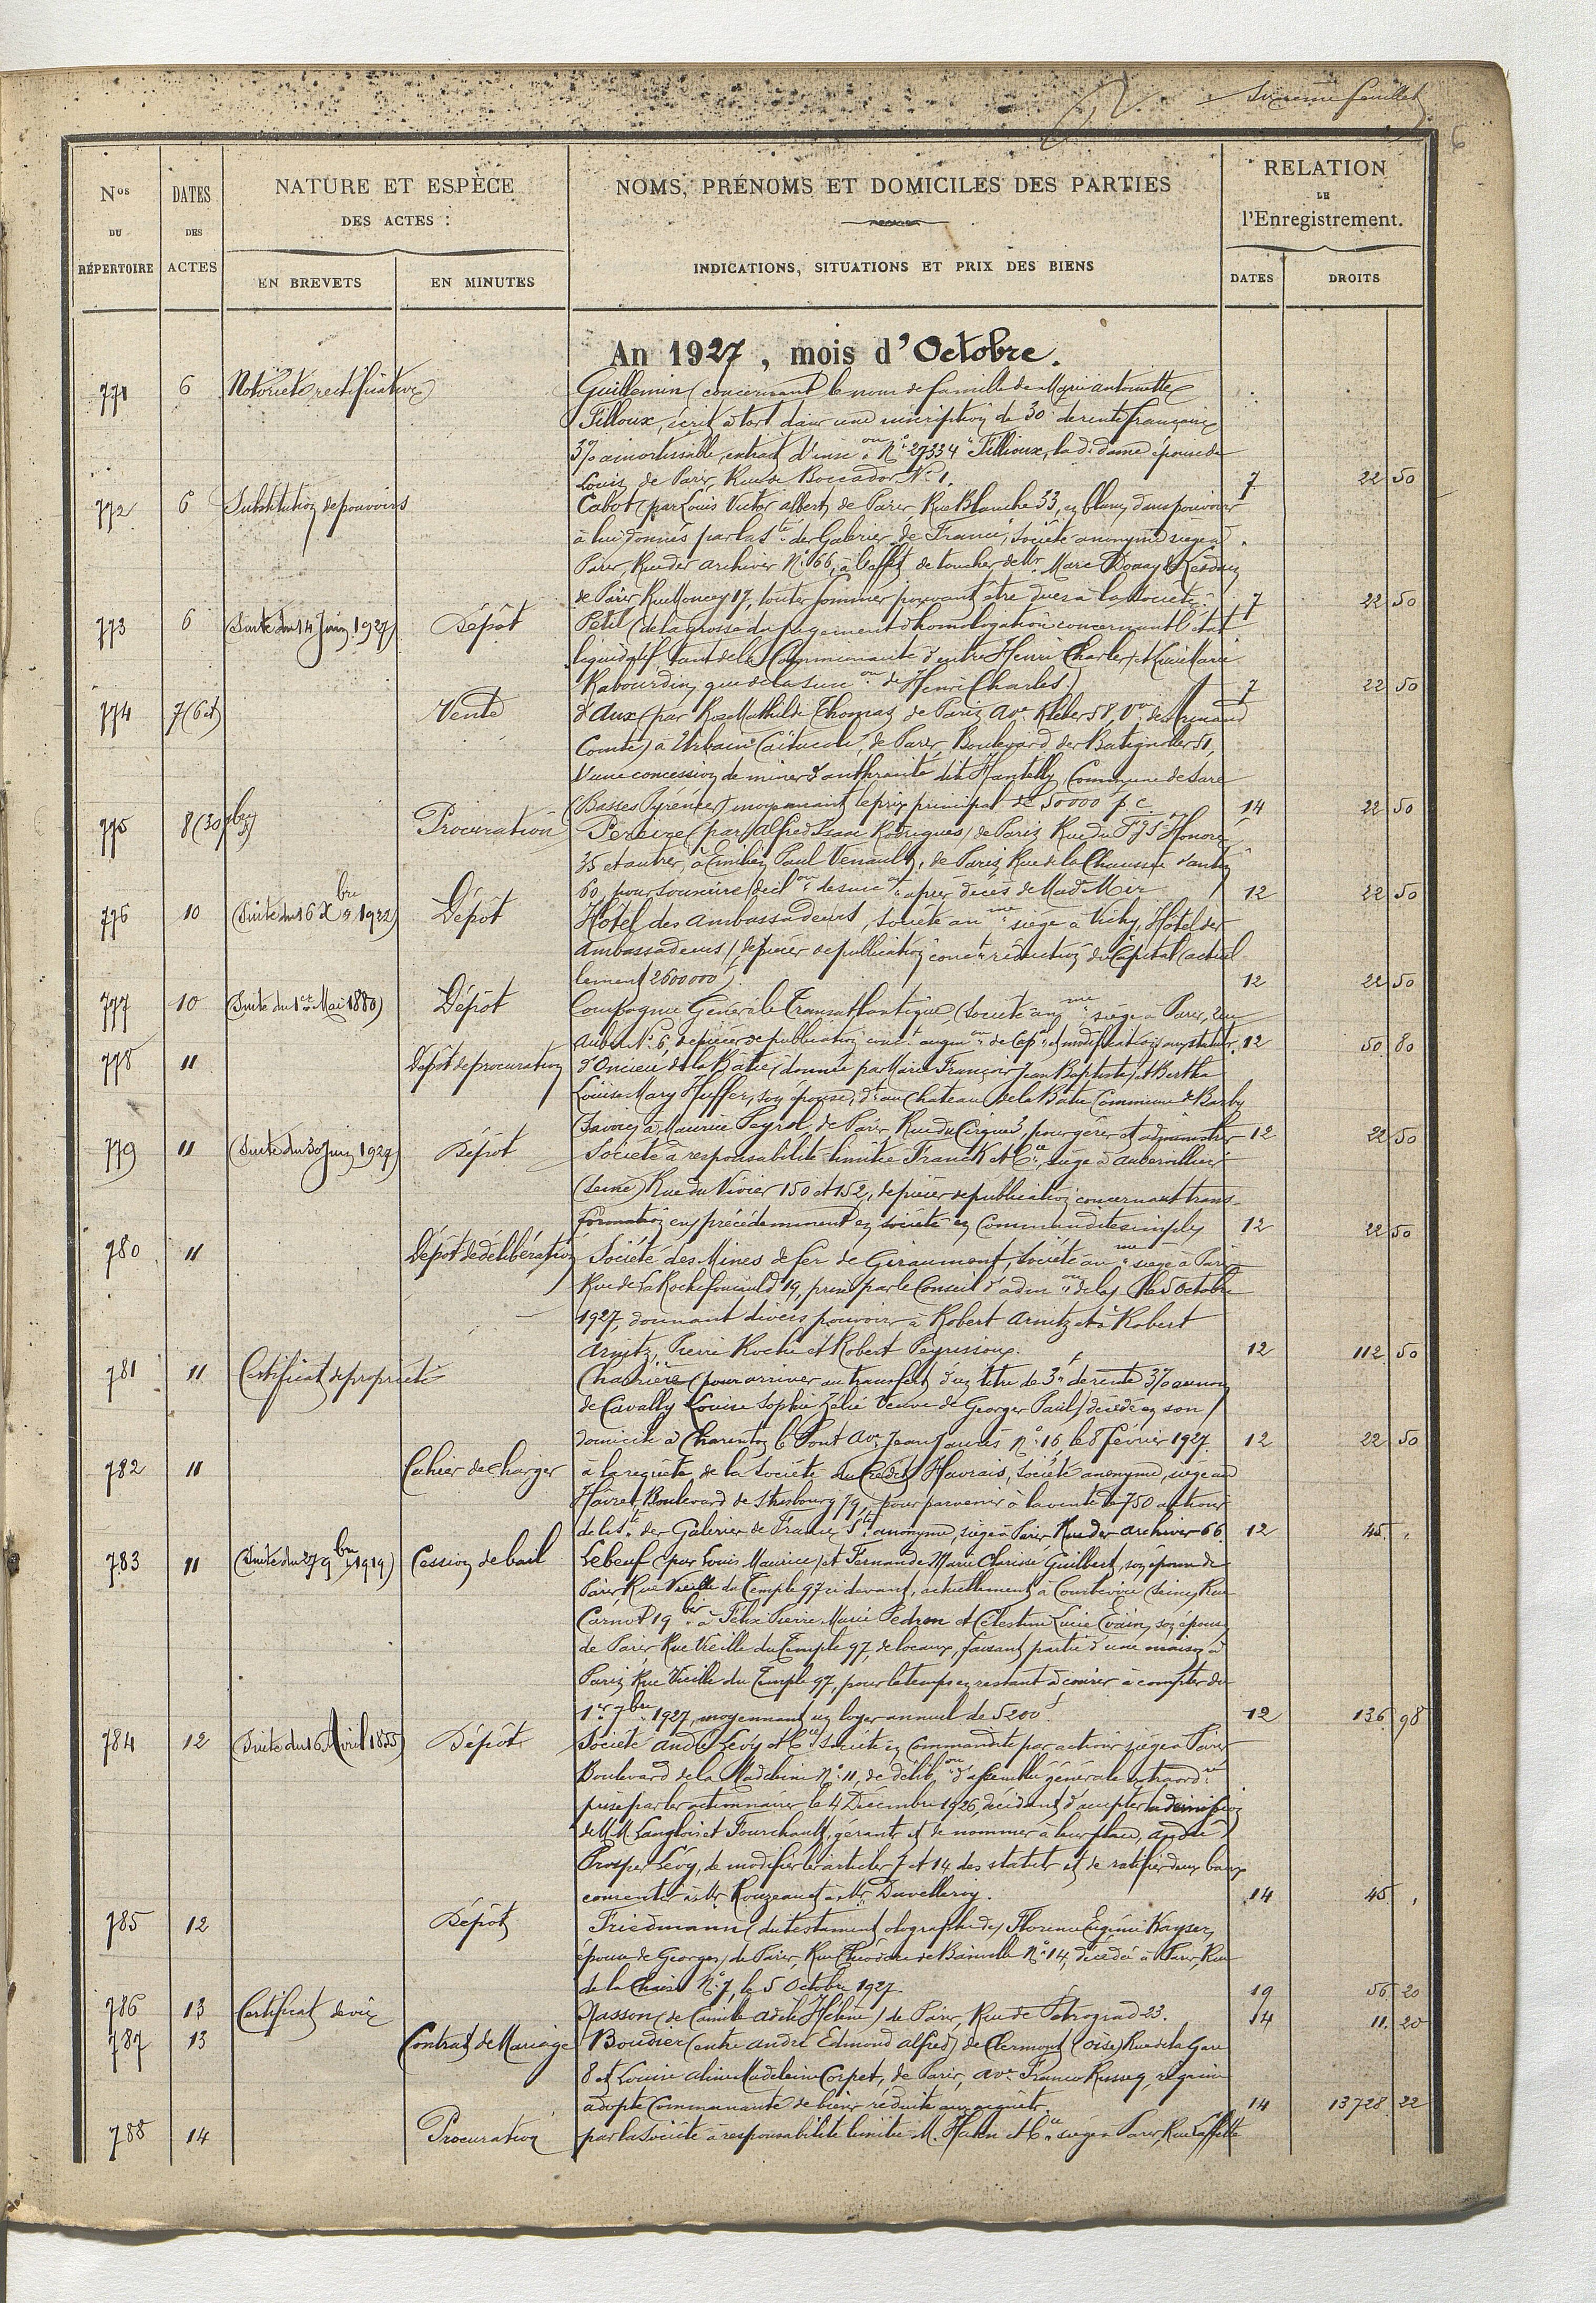 Sixième feuillet
6
Nos DU RÉPERTOIRE
DATES DES ACTES
NATURE ET ESPÈCE DES ACTES :
EN BREVETS
EN MINUTES
NOMS, PRÉNOMS ET DOMICILES DES PARTIES
INDICATIONS, SITUATIONS ET PRIX DES BIENS
RELATION DE l'Enregistrement.
DATES
DROITS
An 1927, mois d'Octobre.
771 6 Notoriété rectificative Guillemin (concernant le nom de famille de Marie Antoinette
Filloux, écrit à tort dans une inscription de 30 de rente française
3% amortissable, extrait d'insc on No 27334 "Fillioux, lad. dame épouse de
Louis, de Paris, Rue de Boccador No 1. 7 22 50
772 6 Substitution de pouvoirs Cabot (par Louis Victor Albert, de Paris Rue Blanche 33, en blanc, dans pouvoirs
à lui donnés par la Sté des Galeries de France, société anonyme siège à
Paris, Rue des Archives No 66, à l'effet de toucher de Mr. Marc
de Paris Rue Moncey 17, toutes sommes pouvant être dues à la Société. 7 22 50
773 6 (Suite du 14 Juin 1927) Dépôt Petit (de la grosse du jugement d'homologation concernant l'état
liquidatif tant de la Communauté d'entre Henri Charles, et Marie
Rabourdin, que de la succ on de Henri Charles.) 7 22 50
774 7 (6 et) Vente d'Aux (par Rose Mathilde Thomas, de Paris, Ave. Kléber 58, Vve de Armand
Comte) à Urbain Caïtucoli, de Paris, Boulevard des Batignolles 51,
d'une concession de mines d'anthracite dit Hantelly, Commune de Sare
(Basses Pyrénées) moyennant le prix principal de 50000 f c. 14 22 50
775 8 (30 7bre) Procuration Pereire (par Alfred Isaac Rodrigues) de Paris, Rue du Fg St Honoré
35 et autres, à Emilien Paul Venault, de Paris, Rue de la Chaussée d'Antin
60, pour souscrire décl on de succ on après décès de Mad. Mir 12 22 50
776 10 (Suite du 16 Xbre 1922) Dépôt Hôtel des Ambassadeurs, Société an me siège à Vichy, Hôtel des
Ambassadeurs (de pièces de publication conc t réduction du Capital (actuel
lement 2600000 f). 12 22 50
777 10 (Suite du 1er Mai 1880) Dépôt Compagnie Générale Transatlantique, (Société an me siège à Paris, Rue
Auber No. 6, de pièces de publication conc t augm on de Cap al et modification aux statuts. 12 50 80
778 11 Dépôt de procuration d'Oncieu de la Bâtie (donnée par Marie François Jean Baptiste, et Bertha
Louise Mary Huffer, son épouse, dt au Château de la Bâtie Commune de Barby
(Savoie) à Maurice Peyrot, de Paris, Rue du Cirque 3, pour gérer et administrer 12 22 50
779 11 (Suite du 30 Juin 1927) Dépôt Société à responsabilité limitée Franck et Cie, siège à Aubervilliers
(Seine) Rue du Vivier 150 et 152, de pièces de publication concernant trans-
formation en, précédemment en société en Commandite simple, 12 22 50
780 11 Dépôt de délibération Société des Mines de fer de Giraumont, Société an me siège à Paris
Rue de La Rochefoucauld 19, prise par le Conseil d'adm on de las. le 5 Octobre
1927, donnant divers pouvoirs à Robert Arnitz et à Robert
Arnitz, Pierre Roche et Robert Peyrissoux. 12 112 50
781 11 Certificat de propriété Charrière (pour arriver au transfert d'un titre de 3 f de rente 3% au nom
de Cavally Louise Sophie Zélie veuve de Georges Paul) décédée en son
domicile à Charenton le Pont Ave Jean Jaurès No. 16, le 8 février 1927. 12 22 50
782 11 Cahier de charges à la requête de la Société du Crédit Havrais, Société anonyme, siège au
Havre, Boulevard de Strasbourg 79, pour parvenir à la vente de 750 actions
de la Sté des Galeries de France, Sté anonyme, siège à Paris Rue des Archives 66. 12 45 "
783 11 (Suite du 27 9bre 1919) Cession de bail Lebeuf (par Louis Maurice, et Fernande Marie Clarisse Guilbert, son épouse de
Paris Rue Vieille du Temple 97 ci devant, actuellement à Courbevoie (Seine), Rue
Carnot 19 bis à Félix Pierre Marie Pedron et Célestine Lucie Evain, son épouse,
de Paris, Rue Vieille du Temple 97, de locaux, faisant partie d'une maison à
Paris, Rue Vieille du Temple 97, pour le temps en restant à courir à compter du
1er 7bre 1927, moyennant un loyer annuel de 5200 f 12 136 98
784 12 (Suite du 16 Avril 1855) Dépôt Société André Lévy et Cie Société en Commandite par actions siège à Paris
Boulevard de la Madeleine No. 11, de délib on d'assemblée générale extraord re
prise par les actionnaires le 4 Décembre 1926, décidant d'accepter la démission
de MM. Langlois et Fourchault, gérants et de nommer à leur place, André
Prosper Lévy, de modifier les articles 7 et 14 des statuts et de ratifier deux baux
consentis à Mr. Rouzeau et à Mr. Duvelleroy. 14 45 "
785 12 Dépôt Friedmann (du testament olographe de, Florence Eugénie Kayser,
épouse de Georges, de Paris, Rue Théodore de Banville No. 14, décédée à Paris, Rue
de la Chaise No. 7, le 5 Octobre 1927. 19 56 20
786 13 Certificat de vie Nasson (de Camille Adèle Hélène) de Paris, Rue de Pétrograd 23. 14 11 20
787 13 Contrat de Mariage Boudier (entre André Edmond Alfred) de Clermont (Oise) Rue de la Gare
8 et Louise Aline Madeleine Corpet, de Paris, Ave. Franco Russe 9, régime
adopté Communauté de biens réduite aux acquêts. 14 13728 22
788 14 Procuration par la Société à responsabilité limitée M. Hahn et Cie siège à Paris, Rue Laffitte